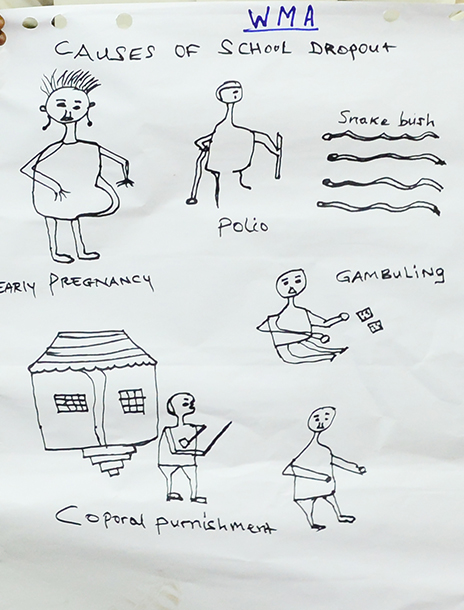 WMA
CAUSES OF SCHOOL DROPOUT
Snake bush
Polio
EARLY PREGNANCY
GAMBULING
Coporal purnishment